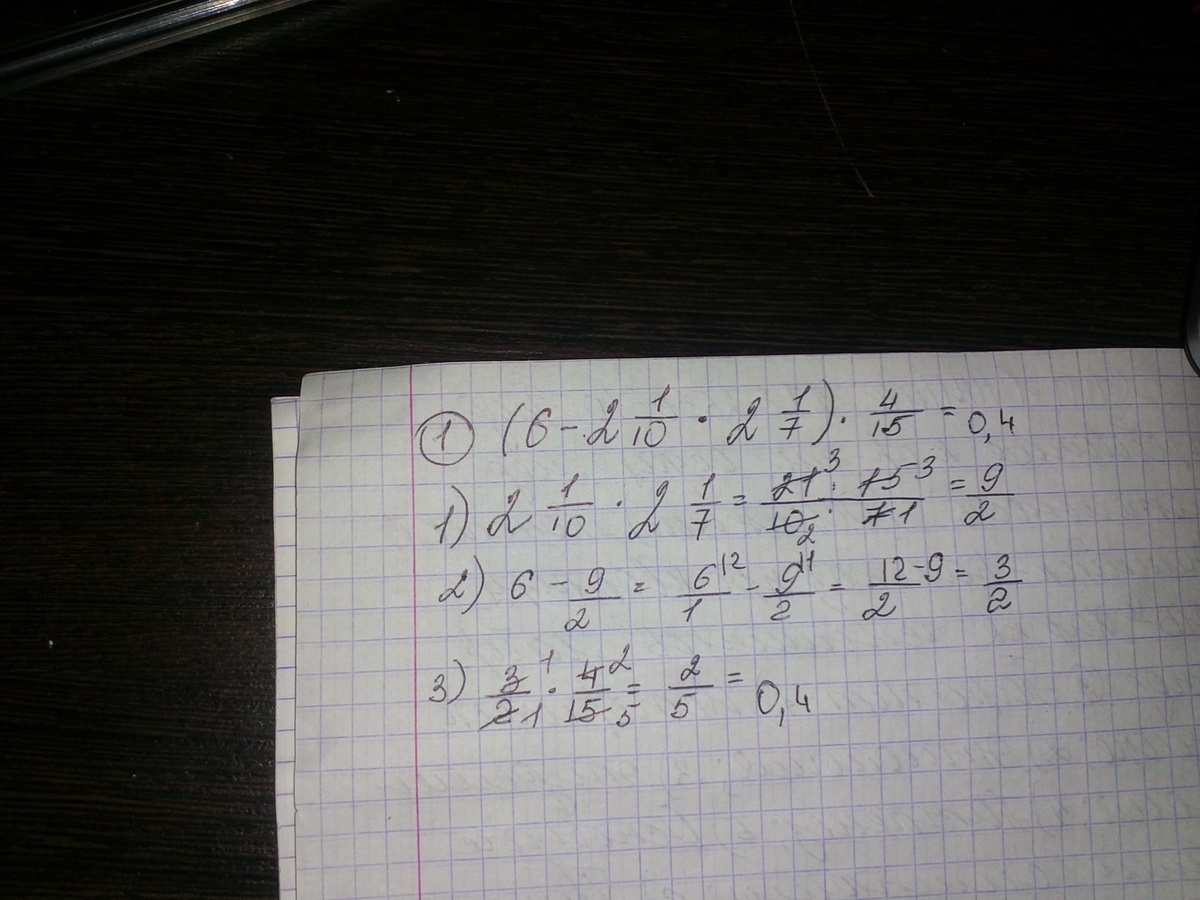 ① (6 - 2 1/10 · 2 1/7) · 4/15 = 0,4
1) 2 1/10 · 2 1/7 = 21 3 · 15 3 / 10 2 · 7 1 = 9/2
2) 6 - 9/2 = 6 12/1 - 9 11/2 = 12-9/2 = 3/2
3) 3 1/2 1 · 4 2/15 5 = 2/5 = 0,4